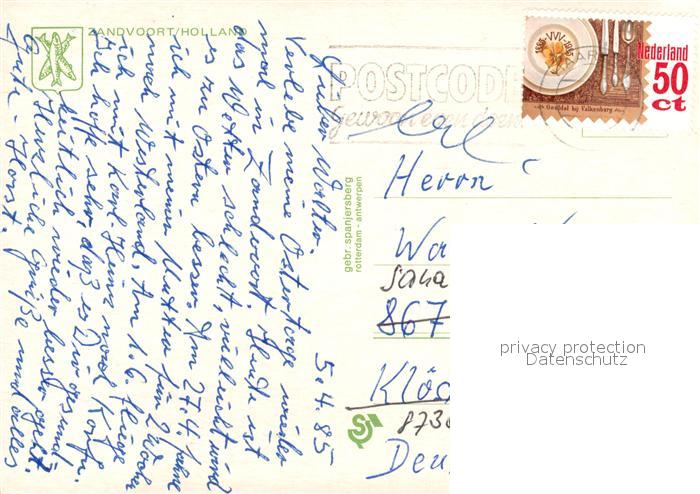 ZANDVOORT/HOLLAND
5.4.85
Guter Walter.
Verlebe meine Ostertage wieder
mal in Zandvoort. Heute ist
das Wetter schlecht, vielleicht wird
es zu Ostern besser. Am 27.4. fahre
ich mit meiner Mutter für 2 Wochen
nach Westerland. Am 1.6. fliege
ich mit Karl Heinz nach Korfu.
Ich hoffe sehr daß es Dir gesund-
heitlich wieder besser geht.
Herzliche Grüße und alles
Gute Horst.
gebr. spanjersberg
rotterdam - antwerpen
POSTCODE
gewoon even doen
1885 VVV 1985
Geuldal bij Valkenburg
Nederland
50
ct
Herrn
Wa
Sana
867
Klö
8730
Deu
privacy protection
Datenschutz